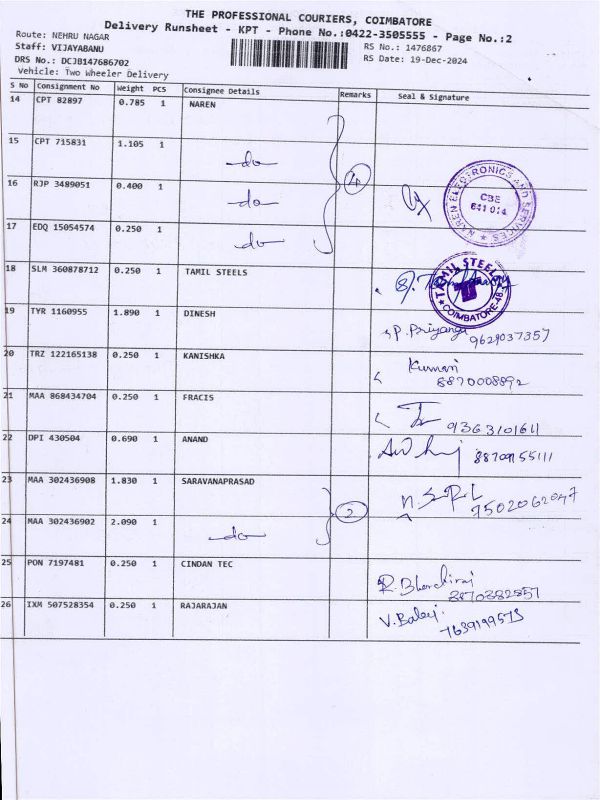 THE PROFESSIONAL COURIERS, COIMBATORE
Delivery Runsheet - KPT - Phone No.:0422-3505555 - Page No.:2
Route: NEHRU NAGAR
RS No.: 1476867
Staff: VIJAYABANU
RS Date: 19-Dec-2024
DRS No.: DCJB147686702
Vehicle: Two Wheeler Delivery
S No Consignment No Weight PCS Consignee Details Remarks Seal & Signature
14 CPT 82897 0.785 1 NAREN
15 CPT 715831 1.105 1 do
16 RJP 3489051 0.400 1 do 4
NAREN ELECTRONICS AND SERVICES
CBE
641 014
17 EDQ 15054574 0.250 1 do
18 SLM 360878712 0.250 1 TAMIL STEELS
TAMIL STEELS
COIMBATORE-48
19 TYR 1160955 1.890 1 DINESH P. Priyanga
9629037357
20 TRZ 122165138 0.250 1 KANISHKA Kumari
8870008892
21 MAA 868434704 0.250 1 FRACIS 9363101611
22 DPI 430504 0.690 1 ANAND
23 MAA 302436908 1.830 1 SARAVANAPRASAD
2 9502062047
24 MAA 302436902 2.090 1 do
25 PON 7197481 0.250 1 CINDAN TEC R. Bharathiraj
8870382857
26 IXM 507528354 0.250 1 RAJARAJAN V. Balaji
7639199573